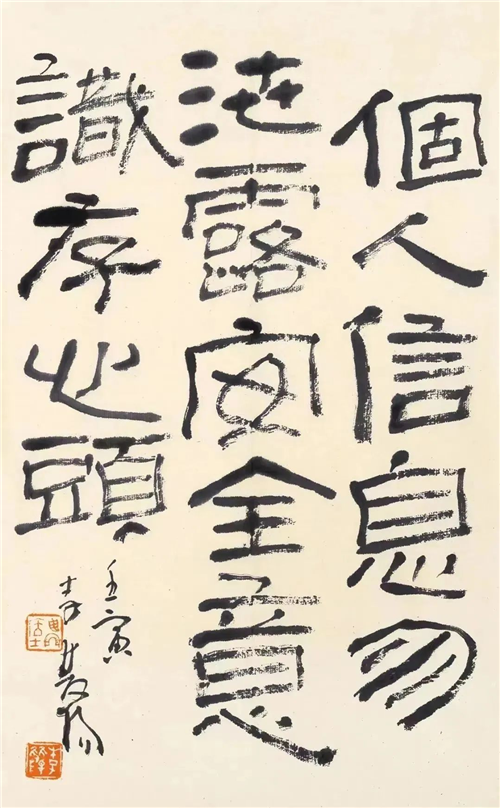 個人信息勿
泄露安全意
識存心頭
壬寅